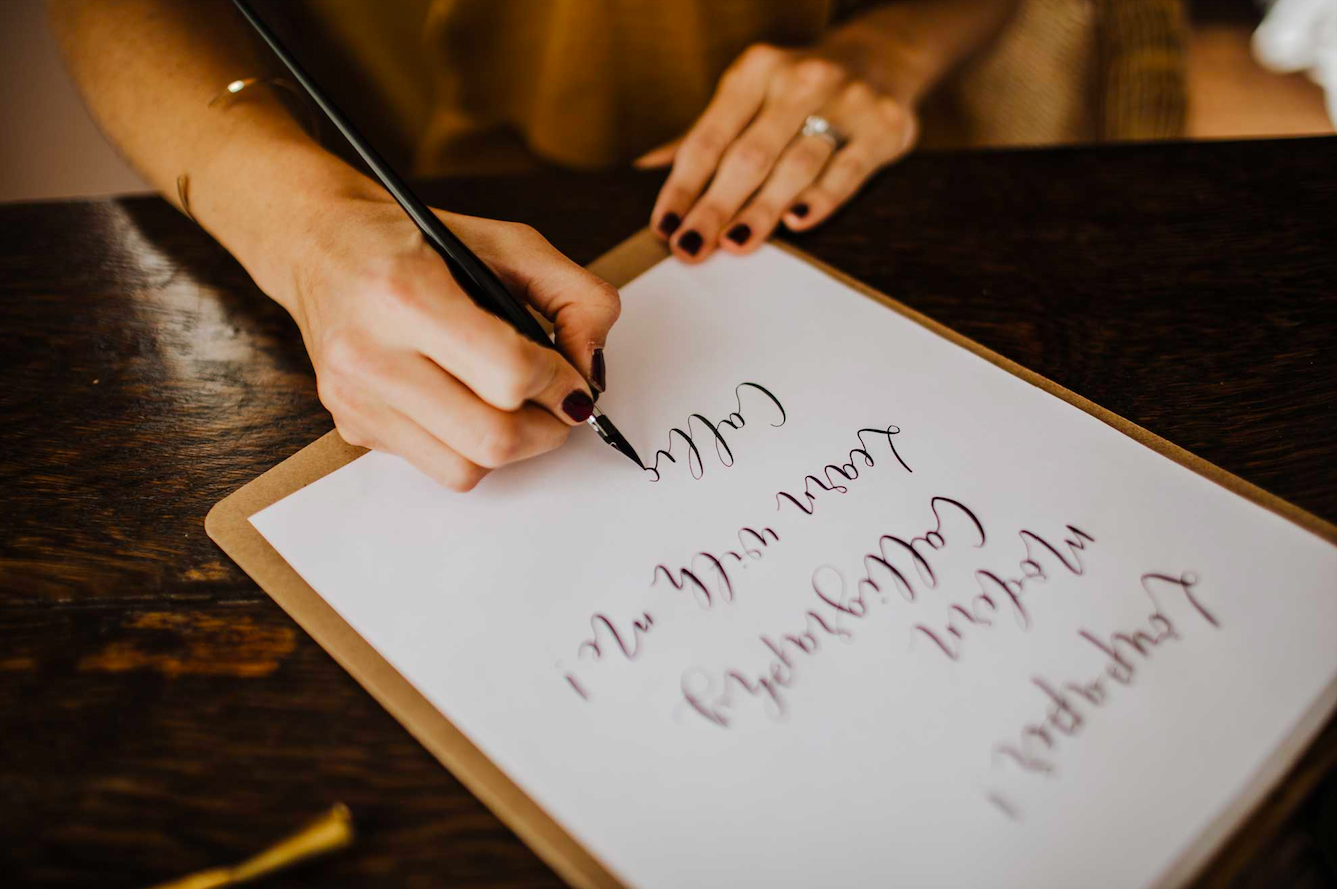 Loupaper !
Modern
Calligraphy
Learn with me !
Callig